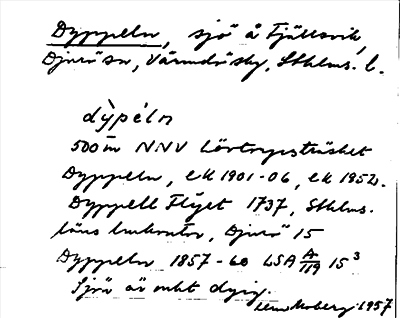 Dyppeln, sjö å Fjällsvik,
Djurö sn, Värmdö sky, Sthlms. l.
dỳpéln
500 m NNV Lövtorpsträsket
Dyppeln, EK 1901-06, EK 1952.
Dyppell Flyet 1737, Sthlms.
läns lantkontor, Djurö 15
Dyppeln 1857-60 LSA A/119 15³
Sjön är mkt dyig.
Lena Moberg 1957